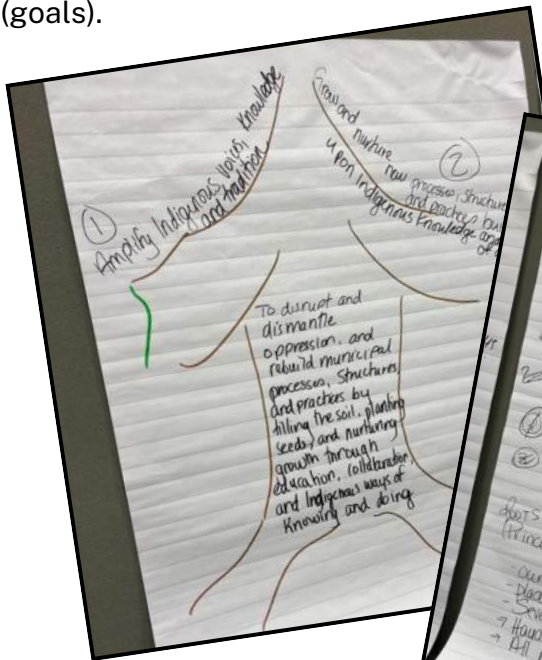 (goals).
①
Amplify Indigenous voices, knowledge
and tradition
②
Grow and nurture new processes, structure
and practices bu
upon Indigenous Knowledge and
of
To disrupt and
dismantle
oppression, and
rebuild municipal
processes, structures,
and practices by
tilling the soil, planting
seeds, and nurturing
growth through
education, collaboration,
and Indigenous ways of
Knowing and doing
Roots
(Princ
- Our
- Place
- Seve
→ Haud
→ All